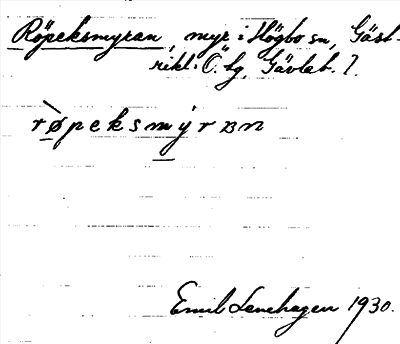 Röpeksmyran, myr i Högbo sn, Gäst-
rikl. Ö. tg, Gävleb. l.
røpeksmyrʌn
Emil Lenehagen 1930.